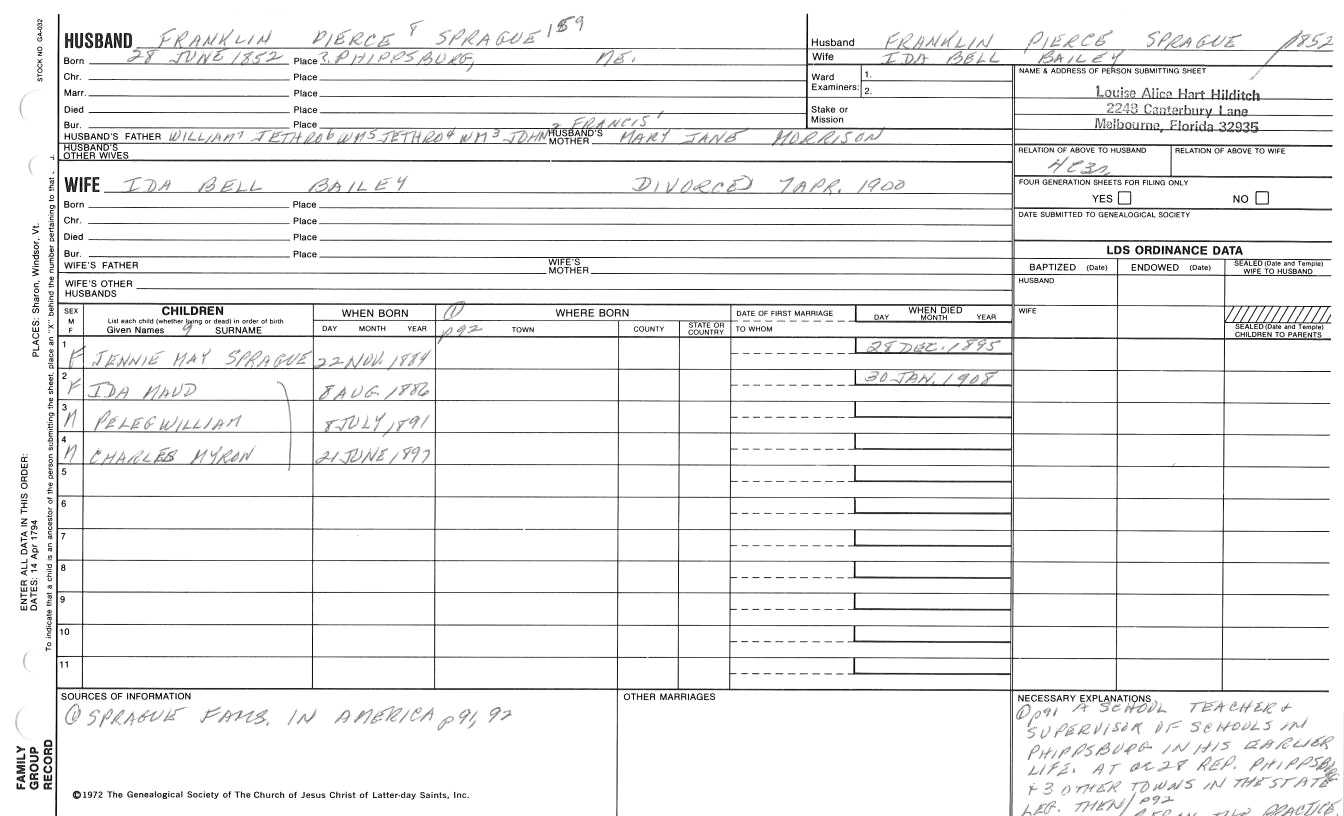 STOCK NO. GA-032
PLACES: Sharon, Windsor, Vt.
ENTER ALL DATA IN THIS ORDER:
DATES: 14 Apr 1794
To indicate that a child is an ancestor of the person submitting the sheet, place an "X" behind the number pertaining to that
FAMILY GROUP RECORD
HUSBAND FRANKLIN PIERCE 8 SPRAGUE 159
Born 28 JUNE 1852 Place PHIPPSBURG, ME.
Chr. Place
Marr. Place
Died Place
Bur. Place
2 FRANCIS 1
HUSBAND'S FATHER WILLIAM 7 JETHRO 6 WM 5 JETHRO 4 WM 3 JOHN HUSBAND'S MOTHER MARY JANE MORRISON
HUSBAND'S OTHER WIVES
WIFE IDA BELL BAILEY DIVORCED 7 APR. 1900
Born Place
Chr. Place
Died Place
Bur. Place
WIFE'S FATHER WIFE'S MOTHER
WIFE'S OTHER HUSBANDS
Husband FRANKLIN PIERCE SPRAGUE 1852
Wife IDA BELL BAILEY
Ward Examiners: 1.
2.
Stake or Mission
NAME & ADDRESS OF PERSON SUBMITTING SHEET
Louise Alice Hart Hilditch
2243 Canterbury Lane
Melbourne, Florida 32935
RELATION OF ABOVE TO HUSBAND RELATION OF ABOVE TO WIFE
4C3R
FOUR GENERATION SHEETS FOR FILING ONLY
YES NO
DATE SUBMITTED TO GENEALOGICAL SOCIETY
LDS ORDINANCE DATA
BAPTIZED (Date) ENDOWED (Date) SEALED (Date and Temple) WIFE TO HUSBAND
HUSBAND
WIFE
SEALED (Date and Temple) CHILDREN TO PARENTS
SEX M F
CHILDREN
List each child (whether living or dead) in order of birth
Given Names 9 SURNAME
WHEN BORN
DAY MONTH YEAR
① p92
WHERE BORN
TOWN COUNTY STATE OR COUNTRY
DATE OF FIRST MARRIAGE
TO WHOM
WHEN DIED
DAY MONTH YEAR
1 F JENNIE MAY SPRAGUE 22 NOV. 1884 28 DEC. 1895
2 F IDA MAUD 8 AUG 1886 30 JAN. 1908
3 M PELEG WILLIAM 8 JULY, 1891
4 M CHARLES MYRON 21 JUNE, 1897
5
6
7
8
9
10
11
SOURCES OF INFORMATION
① SPRAGUE FAMS. IN AMERICA p91, 92
OTHER MARRIAGES
NECESSARY EXPLANATIONS
① p91 A SCHOOL TEACHER +
SUPERVISOR OF SCHOOLS IN
PHIPPSBURG IN HIS EARLIER
LIFE. AT 28 REP. PHIPPSBURG
+ 3 OTHER TOWNS IN THE STATE
LEG. THEN / p92
PRACTICE
©1972 The Genealogical Society of The Church of Jesus Christ of Latter-day Saints, Inc.